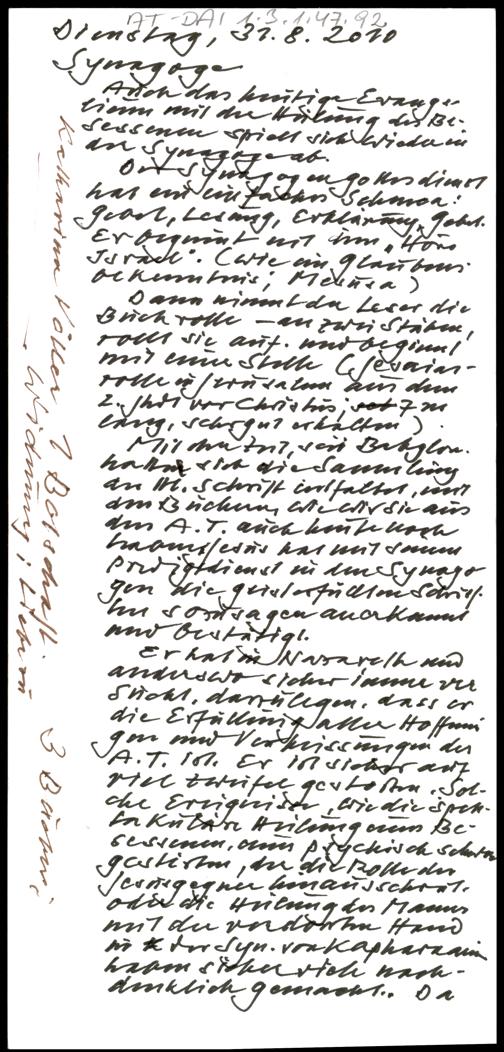 AT-DAI 1.3.1.47.92
Dienstag, 31.8.2010
Synagoge
Auch das heutige Evange-
lium mit der Heilung des Be-
sessenen spielt sich wieder in
der Synagoge ab.
Der Synagogengottesdienst
hat ein einfaches Schema:
Gebet, Lesung, Erklärung, Gebet.
Er beginnt mit dem „Höre
Israel". (wie ein Glaubens-
bekenntnis; Mesusa)
Dann nimmt der Leser die
Buchrolle – an zwei Stäben,
rollt sie auf. und beginnt
mit einer Stelle (Jesaias-
rolle in Jerusalem aus dem
2. Jhdt vor Christus; 7 m
lang, sehr gut erhalten).
Mit der Zeit, seit Babylon.
haben sich die Sammlung
der Hl. Schrift entfaltet, mit
den Büchern, wie wir sie aus
dem A.T. auch heute noch
haben. Jesus hat mit seinem
Predigtdienst in den Synago
gen die geisterfüllten Schrif-
ten sozusagen anerkannt
und bestätigt.
Er hat in Nazareth und
anderswo sicher immer ver
sucht, darzulegen, dass er
die Erfüllung aller Hoffnun
gen und Verheissungen des
A.T. ist. Er ist sicher auf
viel Zweifel gestoßen. Sol-
che Ereignisse, wie die spek-
takuläre Heilung eines Be-
sessenen, eines psychisch schwer
gestörten, der die Rolle der
Jesusgegner hinausschreit.
oder die Heilung des Mannes
mit der verdorrten Hand
in der Syn. von Kapharnaum
haben sicher viele nach-
denklich gemacht.. Da
Katharina Koller 1 Botschaft
- Widmung: Lieb 3 Bücher;